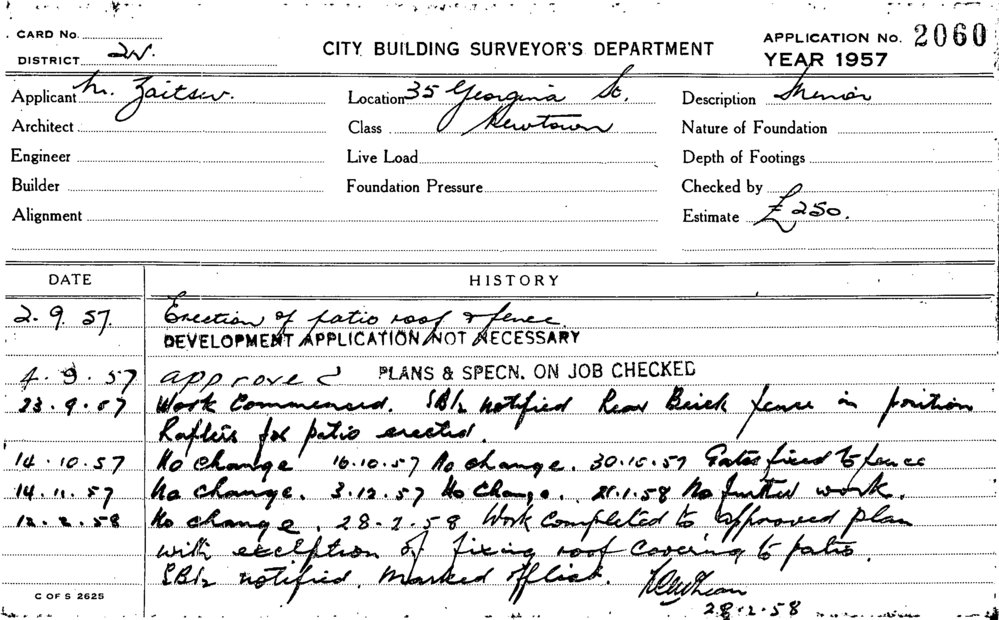 CARD No.
DISTRICT 2W.
CITY BUILDING SURVEYOR'S DEPARTMENT
APPLICATION No. 2060
YEAR 1957
Applicant M. Zaitsev.
Location 35 Georgina St.
Description
Architect
Class Newtown
Nature of Foundation
Engineer
Live Load
Depth of Footings
Builder
Foundation Pressure
Checked by
Alignment
Estimate £250.
DATE HISTORY
2.9.57. Erection of patio roof & fence.
DEVELOPMENT APPLICATION NOT NECESSARY
4.9.57 approved PLANS & SPECN. ON JOB CHECKED
23.9.57 Work Commenced. notified Rear Brick fence in position
Rafters for patio erected.
14.10.57 No change 16.10.57 No change. 30.10.57 Gates fixed to fence
14.11.57 No change. 3.12.57 No Change. 21.1.58 No further work.
12.2.58 No change. 28.2.58 Work Completed to approved plan
with exception of fixing roof covering to patio.
notified. Marked off list.
28.2.58
C OF S 2625